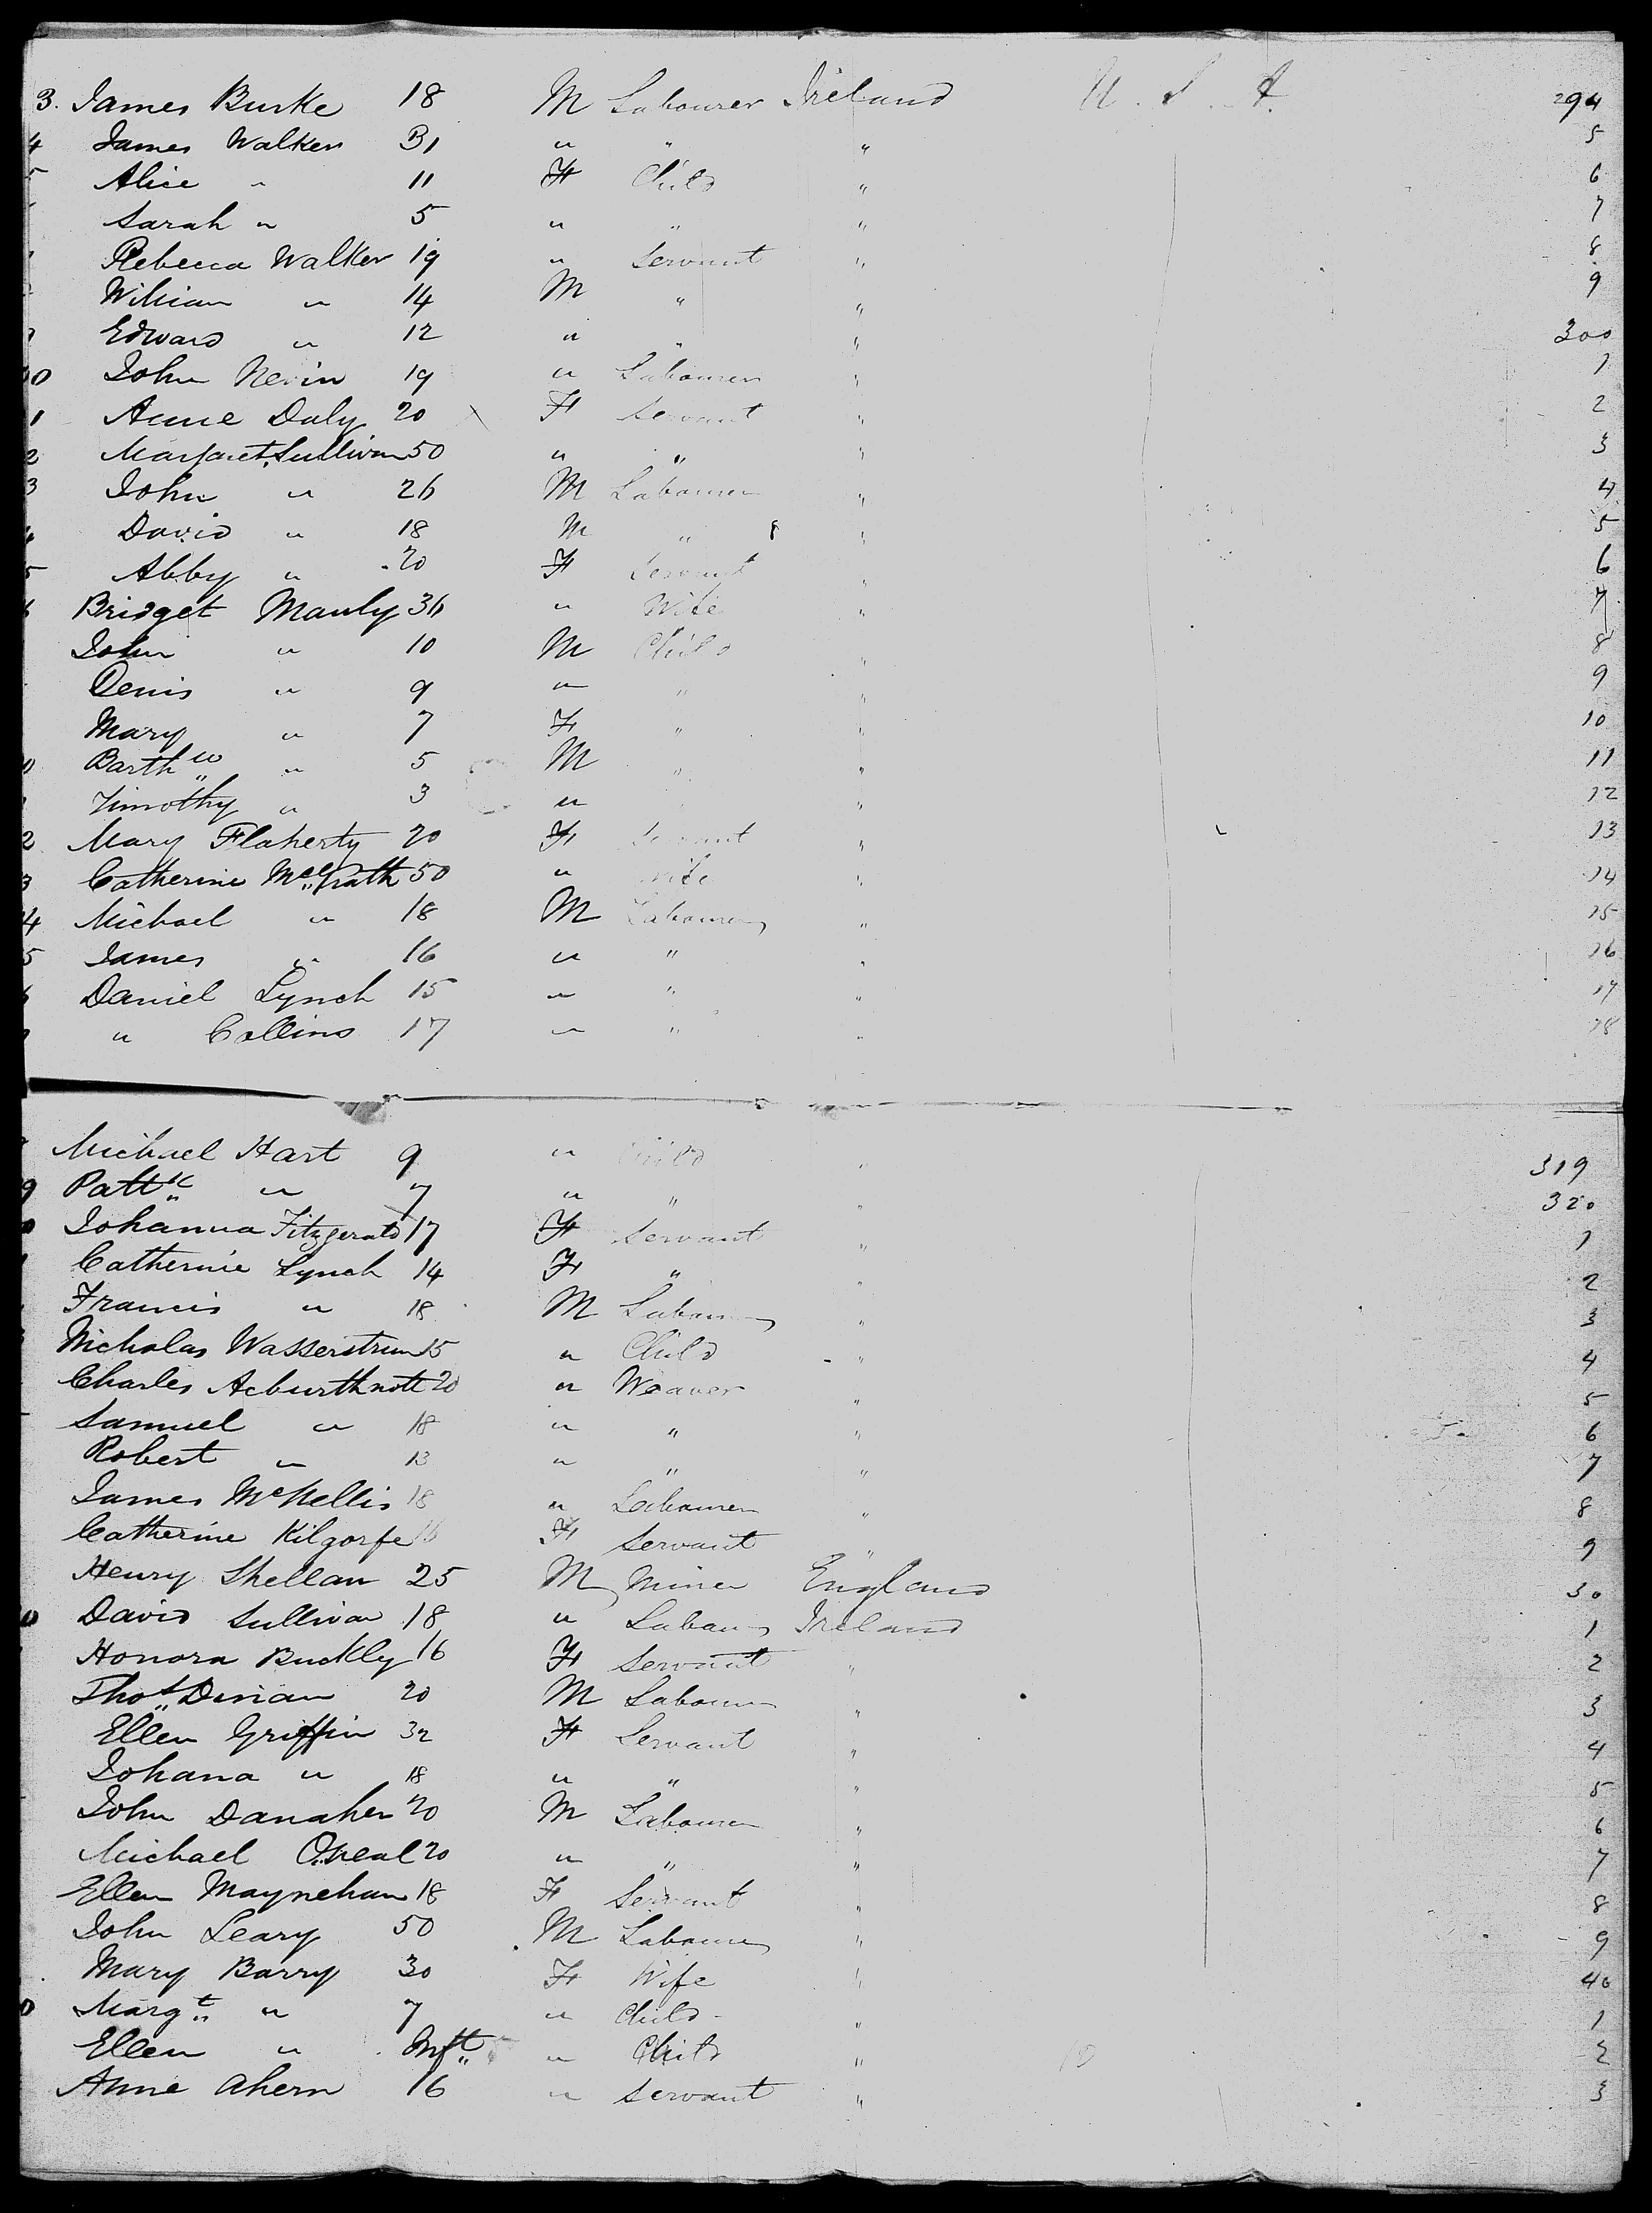 3. James Burke 18 M Labourer Ireland U.S.A. 294
4 James Walker 31 " " " 5
5 Alice " 11 F Child " 6
Sarah " 5 " " " 7
Rebecca Walker 19 " Servant " 8
William " 14 M " " 9
Edward " 12 " " " 300
0 John Nevin 19 " Labourer " 1
1 Anne Daly 20 F Servant " 2
2 Margaret Sullivan 50 " " " 3
3 John " 26 M Labourer " 4
4 David " 18 M " " 5
5 Abby " 20 F Servant " 6
6 Bridget Manly 36 " Wife " 7
John " 10 M Child " 8
Denis " 9 " " " 9
Mary " 7 F " " 10
0 Barthw " 5 M " " 11
Timothy " 3 " " 12
2 Mary Flaherty 20 F Servant " 13
3 Catherine McGrath 50 " Wife " 14
4 Michael " 18 M Labourer " 15
5 James " 16 " " " 16
6 Daniel Lynch 15 " " " 17
" Collins 17 " " " 18
Michael Hart 9 " Child " 319
9 Pattk " 7 " " " 320
0 Johanna Fitzgerald 17 F Servant " 1
Catherine Lynch 14 F " " 2
Francis " 18 M Labourer " 3
Nicholas Wasserstrum 15 " Child " 4
Charles Acburthnott 20 " Weaver " 5
Samuel " 18 " " " 6
Robert " 13 " " " 7
James McNellis 18 " Labourer " 8
Catherine Kilgorfe F Servant " 9
Henry Shellan 25 M Miner England 30
0 David Sullivan 18 " Labourer Ireland 1
Honora Buckly 16 F Servant " 2
Thos Dinan 20 M Labourer " 3
Ellen Griffin 32 F Servant " 4
Johana " 18 " " " 5
John Danaher 20 M Labourer " 6
Michael Oneal 20 " " " 7
Ellen Maynehan 18 F Servant " 8
John Leary 50 M Labourer " 9
Mary Barry 30 F Wife " 40
0 Margt " 7 " Child " 1
Ellen " Inft " Child " 2
Anne Ahern 16 " Servant " 3